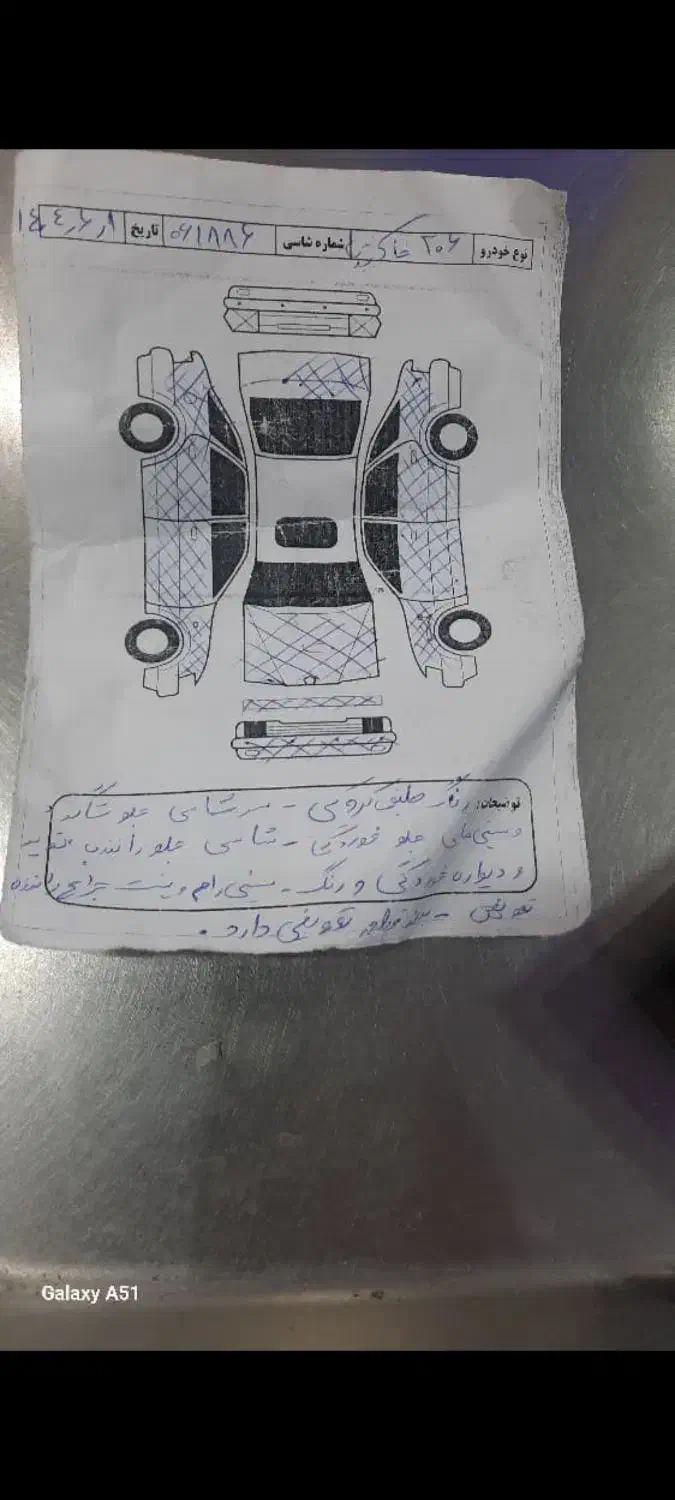 نوع خودرو ۲۰۶ خاکستری شماره شاسی ۰۶۱۸۸۶ تاریخ
توضیحات: رنگ طبق کروکی - سرشاسی جلو شاگرد
و سینی‌های جلو خوردگی - شاسی جلو راننده
و دیواره خوردگی و رنگ - سینی رام و پشت چراغ راننده
تعویض - تعویضی دارد.
Galaxy A51